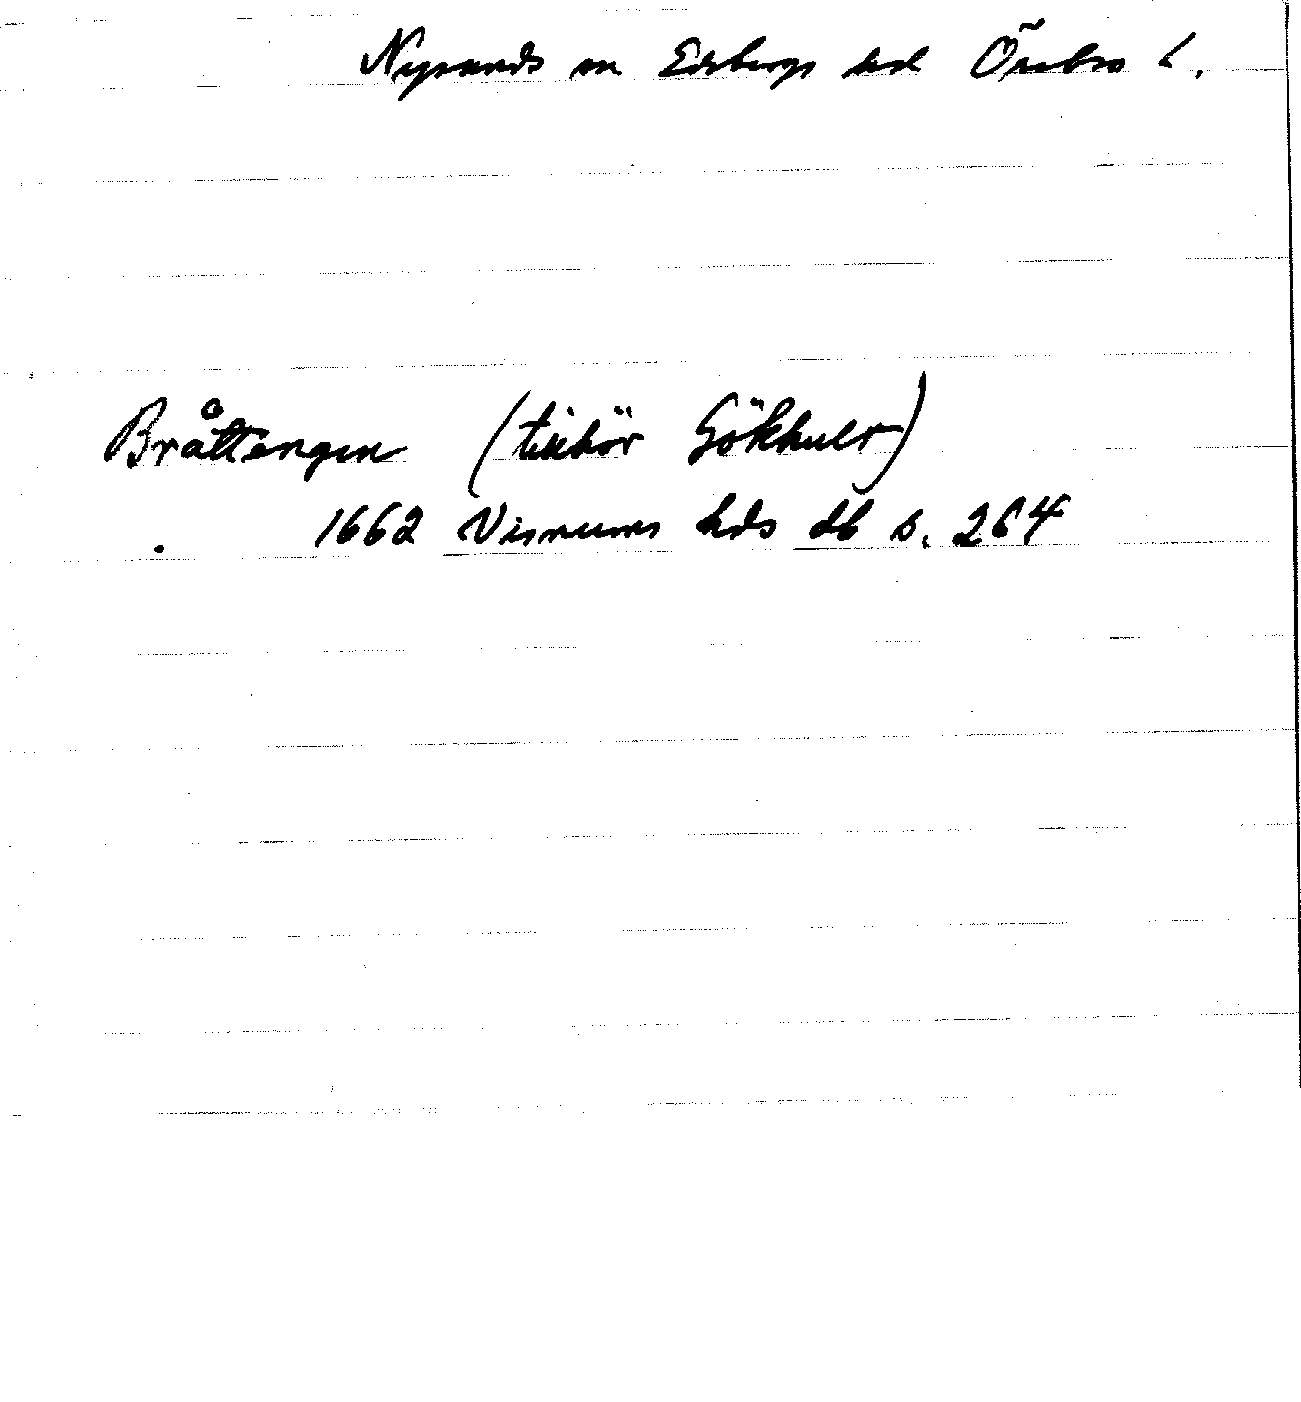 Nysunds sn Edsbergs hd Örebro l.
Bråttengen (tillhör Gökhult)
1662 Visnums hds db s. 264